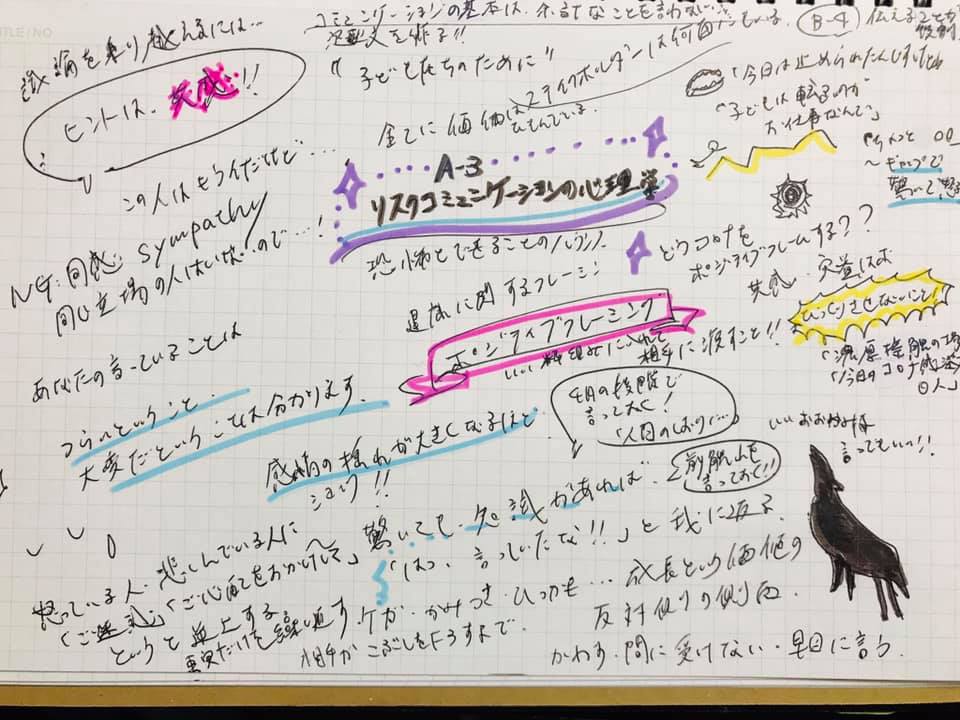 コミュニケーションの基本は、余計なことを言わない
B-4
議論を乗り越えるには…
ヒントは、共感!!
"子どもたちのために"
ステイクホルダーは何
全てに価値はひもんでいる
A-3
リスクコミュニケーションの心理学
恐怖とできることのバランス
「今日は止められたんですけどね
「子どもは転ぶのが
お仕事なんで」
〜ギャップで
驚いて
この人はもう
NG:同感:sympathy
同じ立場の人はいないので…!
どうコロナを
ポジティブフレームする??
共感・
びっくりさせないこと!
に関するフレーミン
ポジティブフレーミング
いい枠組みに入れて
相手に渡すこと!!
あなたの言っていることは
つらいということ、
大変だということは分かります。
4月の段階で
言っておく!
前触れを
言っておく!!
「濃厚接触の場
「今日のコロナ感染
〇人」
いいおおかみ様
言ってもいい!!
感情の揺れが大きくなるほど
ショック!!
驚いても・知識があれば・
「はっ、言っていたな!!」と我に返る
怒っている人・悲しんでいる人に
「ご迷惑」「ご心配をおかけして」
というと炎上する
事実だけを繰り返す
ケガ・かみつき・ひっかき…
成長という価値の
反対側の側面
相手がこぶしを下ろすまで。
かわす・間に受けない・早目に言う